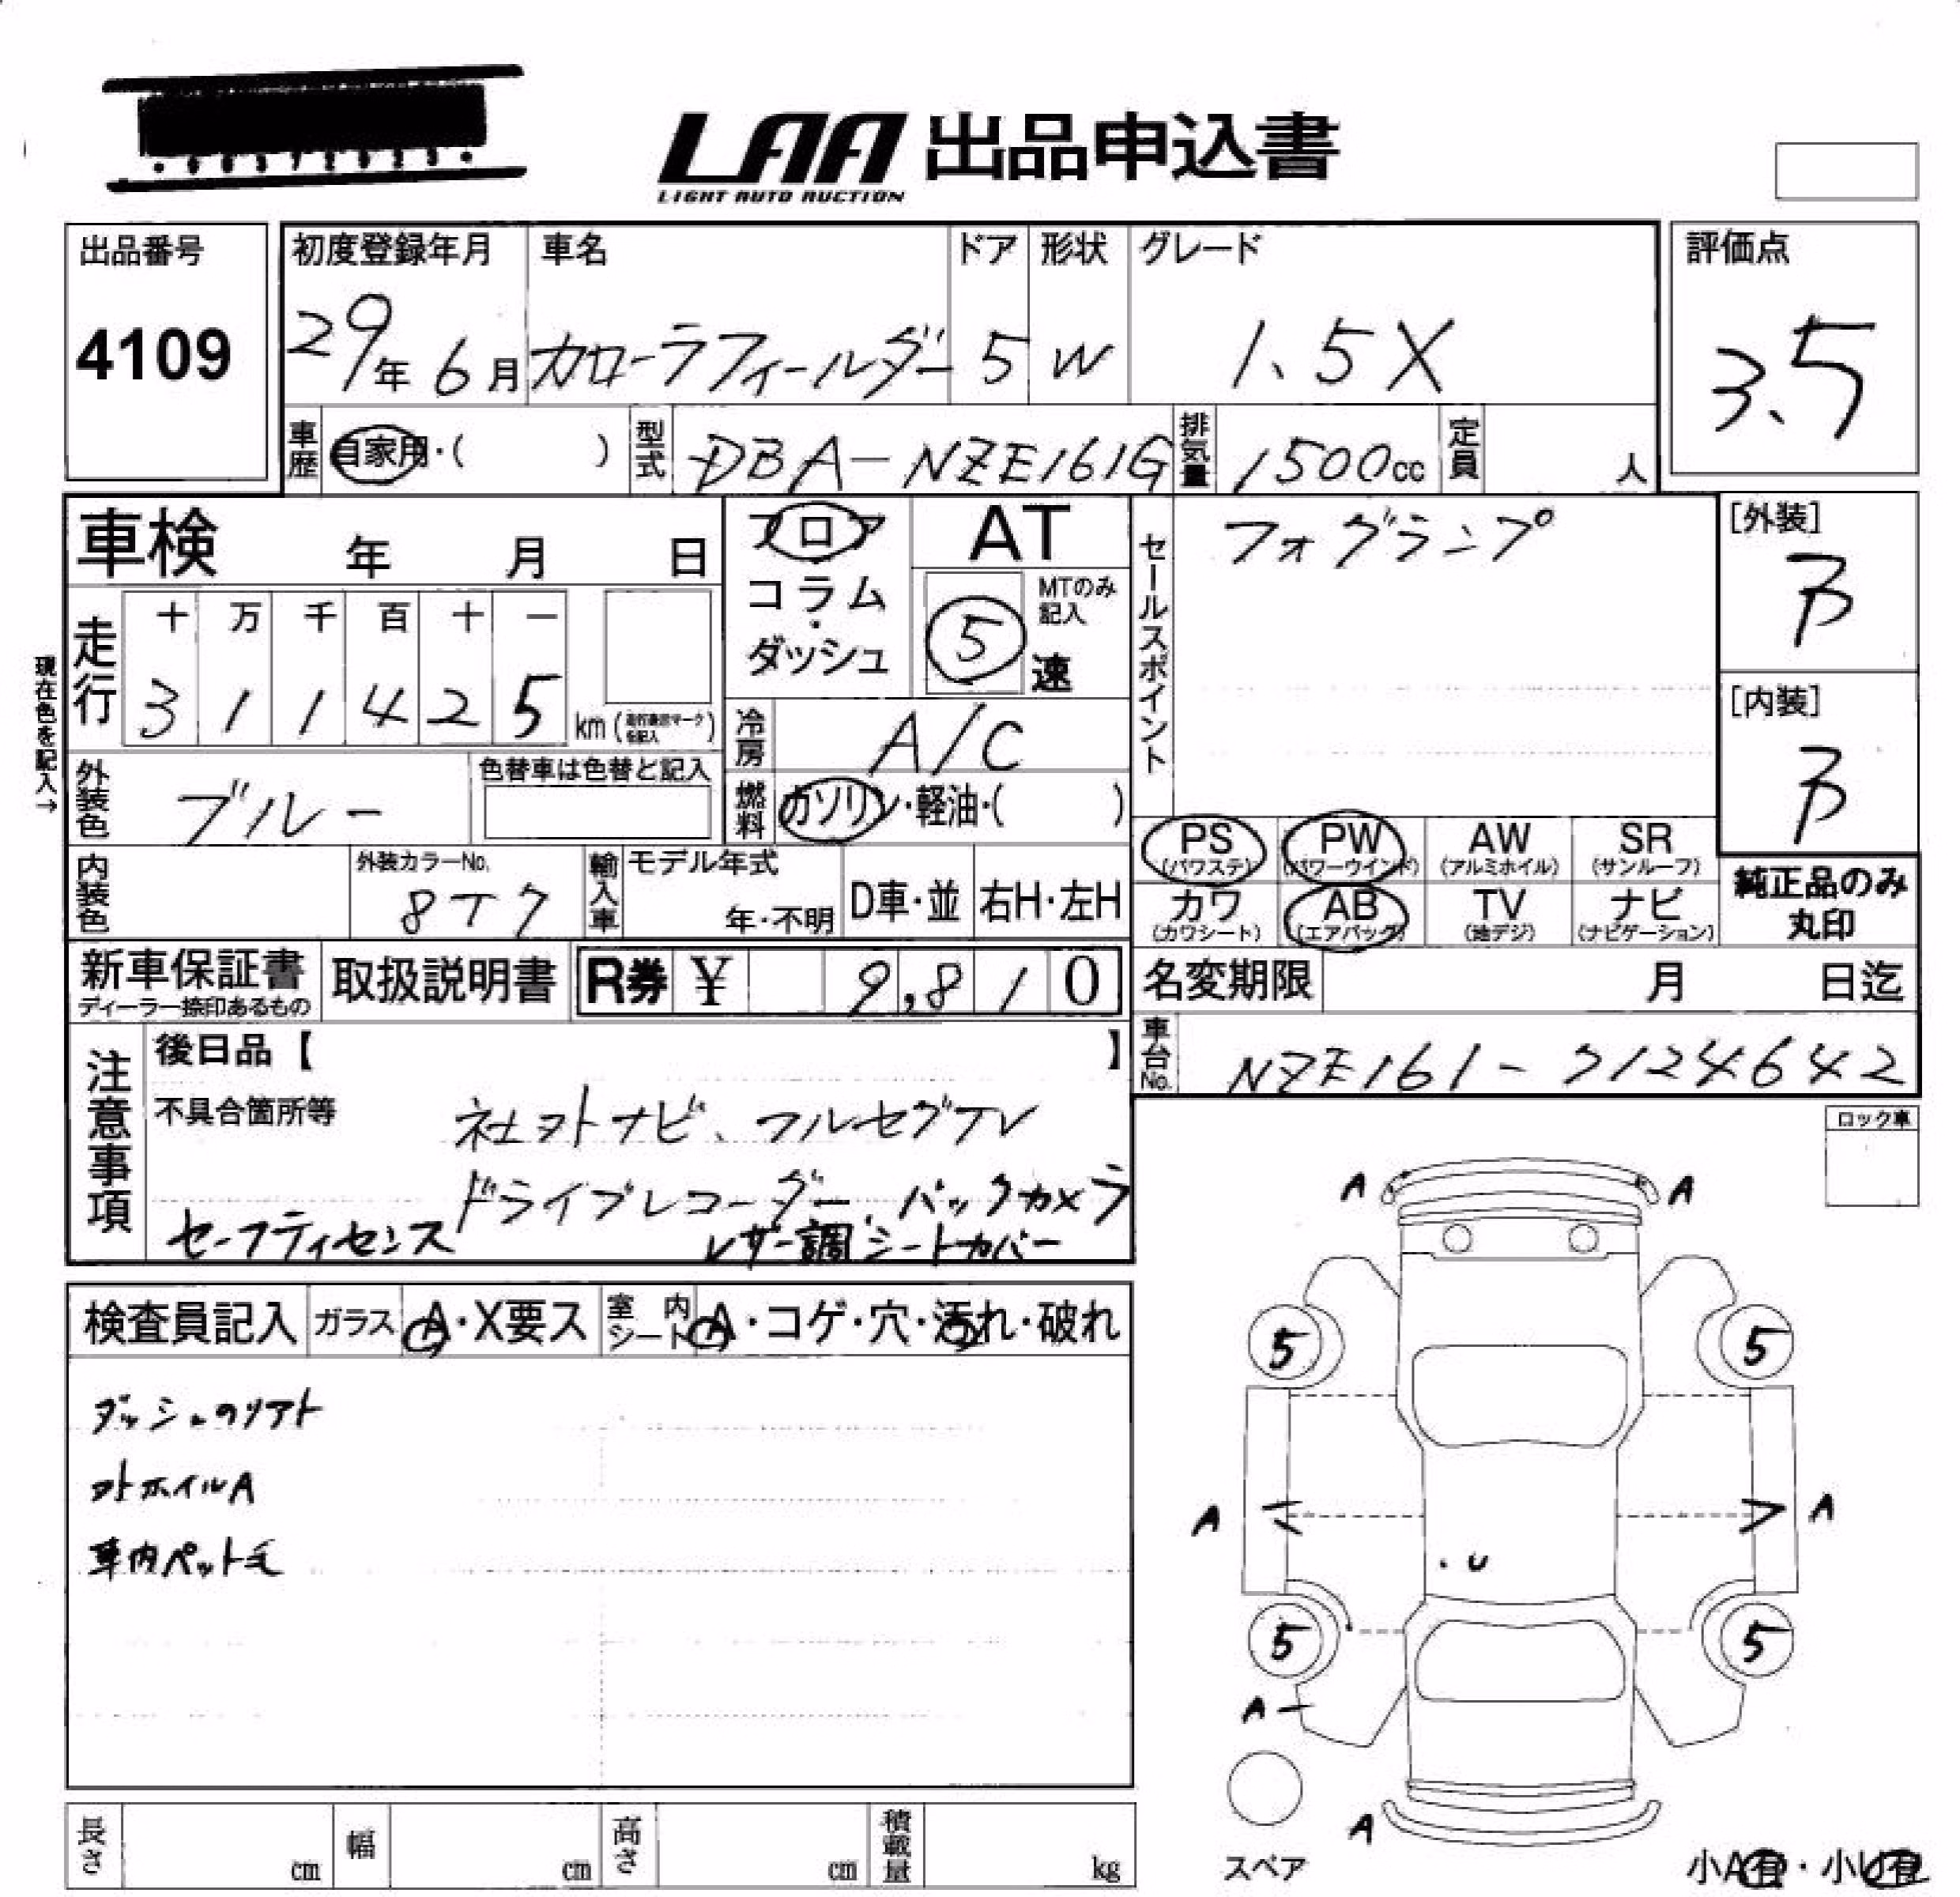 LAA 出品申込書
LIGHT AUTO AUCTION
出品番号
4109
初度登録年月 車名 ドア 形状 グレード
29年 6月 カローラフィールダー 5 W 1.5X
評価点
3.5
車歴 自家用・( ) 型式 DBA-NZE161G 排気量 1500cc 定員 人
車検 年 月 日
フロア
コラム
・
ダッシュ
AT
MTのみ
記入
5 速
セールスポイント
フォグランプ
[外装]
B
[内装]
B
現在色を記入→
走行
十 万 千 百 十 一
3 1 1 4 2 5 km (走行表示マークを記入)
冷房 A/C
外装色 ブルー
色替車は色替と記入
燃料 ガソリン・軽油・( )
PS
(パワステ)
PW
(パワーウインド)
AW
(アルミホイル)
SR
(サンルーフ)
カワ
(カワシート)
AB
(エアバック)
TV
(地デジ)
ナビ
(ナビゲーション)
純正品のみ
丸印
内装色
外装カラーNo.
8T7
輸入車 モデル年式
年・不明
D車・並 右H・左H
新車保証書
ディーラー捺印あるもの
取扱説明書
R券 ¥ 9,810
名変期限 月 日迄
車台No. NZE161-7124642
注意事項
後日品【 】
不具合箇所等
社外ナビ、フルセグTV
ドライブレコーダー、バックカメラ
セーフティセンス レザー調シートカバー
ロック車
検査員記入 ガラス A・X要ス 室内シート A・コゲ・穴・汚れ・破れ
ダッシュのリアト
外ホイルA
車内ペット毛
A A
5 5
A A
・U
5 5
A
A
スペア
小A有・小U有
長さ cm 幅 cm 高さ cm 積載量 kg